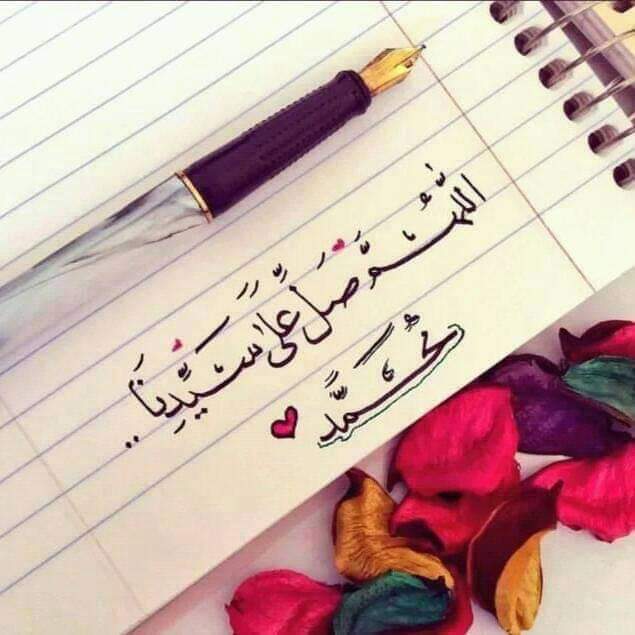 اللَّهُمَّ صَلِّ عَلَىٰ سَيِّدِنَا..
مُحَمَّد